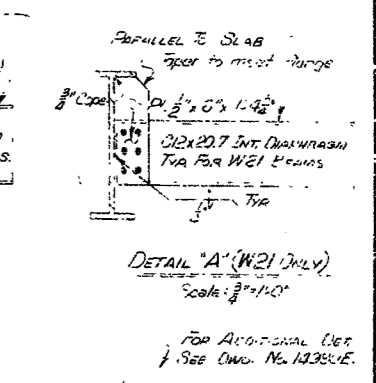 PARALLEL TO SLAB
Taper to meet flange
3/4" Cope
PL 1/2" x 6" x
C12x20.7 INT. DIAPHRAGM
TYP. FOR W21 BEAMS
TYP
DETAIL "A" (W21 ONLY)
Scale: 3/4"=1'-0"
FOR ADDITIONAL DET.
SEE DWG. No.
S.